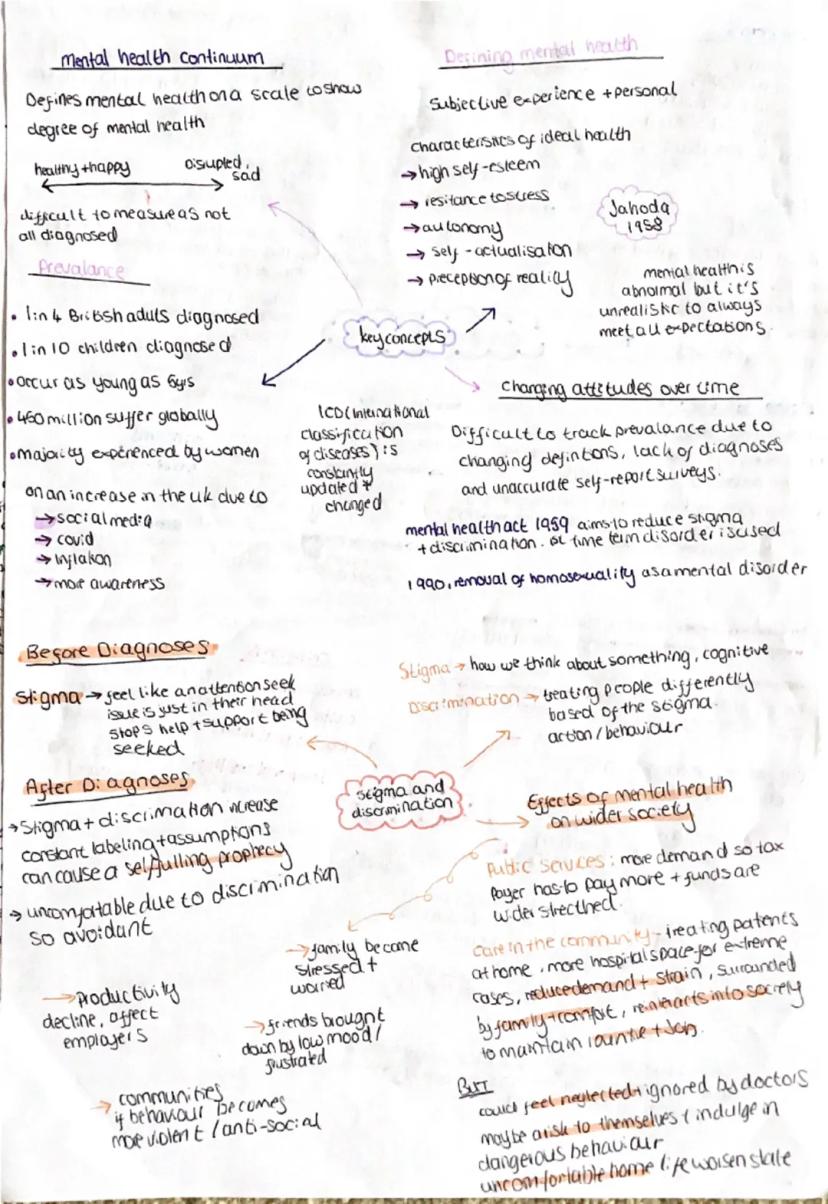 Mental health continuum
Defines mental health on a scale to show
degree of mental health
healthy + happy
disrupted,
sad
difficult to measure as not
all diagnosed
Prevalance
• 1 in 4 British adults diagnosed
• 1 in 10 children diagnosed
• occur as young as 6yrs
• 450 million suffer globally
• majority experienced by women
on an increase in the uk due to
→ social media
→ covid
→ inflation
→ more awareness
Defining mental health
Subjective experience + personal
characteristics of ideal health
→ high self-esteem
→ resitance to stress
→ autonomy
→ self-actualisation
→ preception of reality
Jahoda
1958
mental health is
abnormal but it's
unrealistic to always
meet all expectations.
key concepts
ICD (International
classification
of diseases) is
constantly
updated +
changed
Changing attitudes over time
Difficult to track prevalance due to
changing defintions, lack of diagnoses
and unaccurate self-report surveys.
mental health act 1959 aims to reduce stigma
+ discrimination. 1st time term disorder is used
1990, removal of homosexuality as a mental disorder
Before Diagnoses
Stigma → feel like an attention seek
issue is just in their head
stops help + support being
seeked
After Diagnoses
→ Stigma + discrimation increase
constant labeling + assumptions
can cause a selffulling prophecy
→ uncomfortable due to discrimination
so avoidant
Stigma and
discrimination
Stigma → how we think about something, cognitive
Discrimination → treating people differently
based of the stigma.
action / behaviour
Effects of mental health
on wider society
Public services: more demand so tax
payer has to pay more + funds are
wider strecthed.
Care in the community - treating patients
at home, more hospital space for extreme
cases, reduce demand + strain, surrounded
by family + comfort, reinteracts into society
to maintain rountie + Job.
BUT
could feel neglected + ignored by doctors
maybe a risk to themselves / indulge in
dangerous behaviour
uncomfortable home life worsen state
→ family become
stressed +
worried
→ friends brought
down by low mood /
frustrated
→ Productivity
decline, affect
employers
→ communities
if behaviour becomes
more violent / anti-social